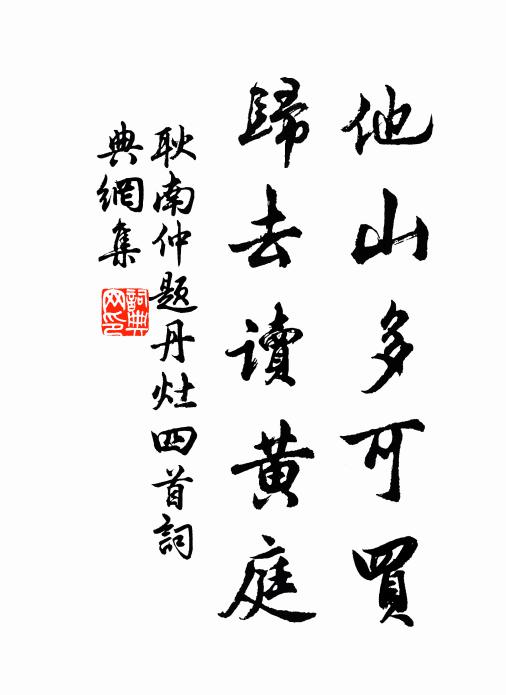 他山多可買
歸去讀黃庭
耿南仲題丹灶四首詞
典網集
詞典
网印